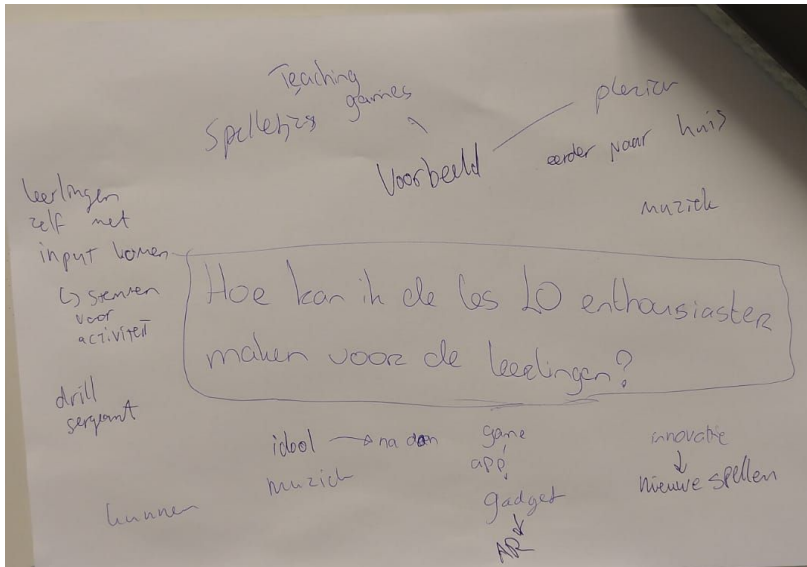 Teaching
games
Spelletjes
Voorbeeld
plezier
eerder naar huis
muziek
leerlingen
zelf met
input komen
↳ stemmen
voor
activiteit
Hoe kan ik de les LO enthousiaster
maken voor de leerlingen?
drill
sergeant
idool → na doen
muziek
kunnen
game
app
gadget
↓
AR
innovatie
↓
nieuwe spellen